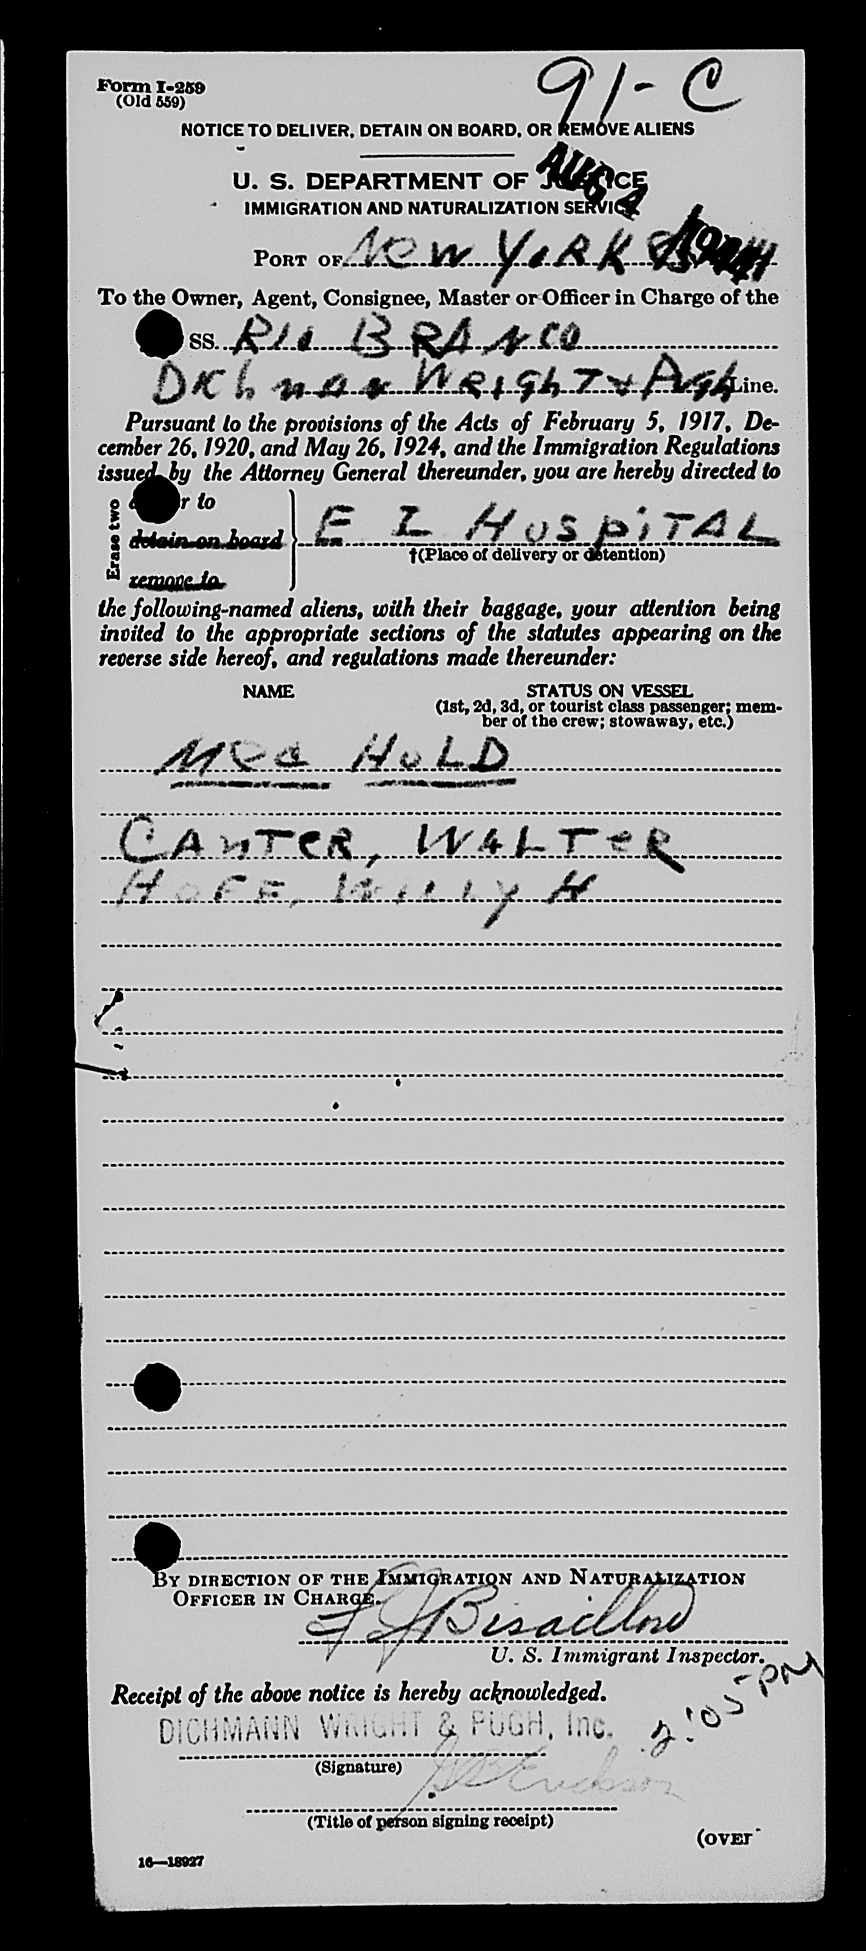 Form I-259
(Old 559)
91-C
NOTICE TO DELIVER, DETAIN ON BOARD, OR REMOVE ALIENS
U. S. DEPARTMENT OF JUSTICE
AUG 4 1941
IMMIGRATION AND NATURALIZATION SERVICE
PORT OF NEW YORK
To the Owner, Agent, Consignee, Master or Officer in Charge of the
SS. RIO BRANCO
Dichman Wright & Pugh Line.
Pursuant to the provisions of the Acts of February 5, 1917, De-
cember 26, 1920, and May 26, 1924, and the Immigration Regulations
issued by the Attorney General thereunder, you are hereby directed to
Erase two
r to
detain on board
remove to
E I HOSPITAL
†(Place of delivery or detention)
the following-named aliens, with their baggage, your attention being
invited to the appropriate sections of the statutes appearing on the
reverse side hereof, and regulations made thereunder:
NAME STATUS ON VESSEL
(1st, 2d, 3d, or tourist class passenger; mem-
ber of the crew; stowaway, etc.)
MED HOLD
CANTER, WALTER
HOFF, WILLY H
BY DIRECTION OF THE IMMIGRATION AND NATURALIZATION
OFFICER IN CHARGE.
Bisaillon
U. S. Immigrant Inspector.
Receipt of the above notice is hereby acknowledged.
2:05 PM
DICHMANN WRIGHT & PUGH, Inc.
(Signature)
Erickson
(Title of person signing receipt)
(OVER
16—18927